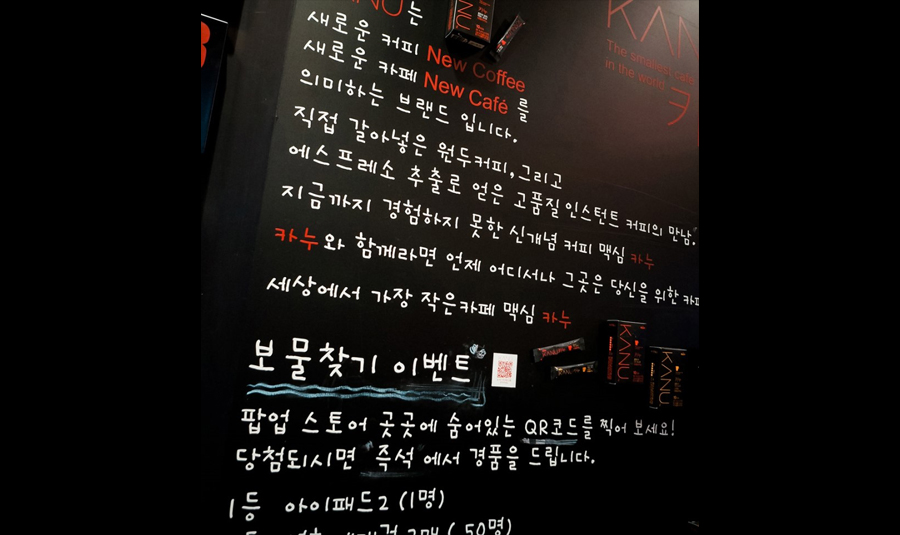 KANU는
새로운 커피 New Coffee
새로운 카페 New Café 를
의미하는 브랜드 입니다.
직접 갈아넣은 원두커피, 그리고
에스프레소 추출로 얻은 고품질 인스턴트 커피의 만남.
지금까지 경험하지 못한 신개념 커피 맥심 카누
카누와 함께라면 언제 어디서나 그곳은 당신을 위한 카페
세상에서 가장 작은카페 맥심 카누
KANU
The smallest café
in the world
카
KANU
KANU
KANU
보물찾기 이벤트
팝업 스토어 곳곳에 숨어있는 QR코드를 찍어 보세요!
당첨되시면 "즉석"에서 경품을 드립니다.
1등 아이패드2 (1명)
2매 (50명)